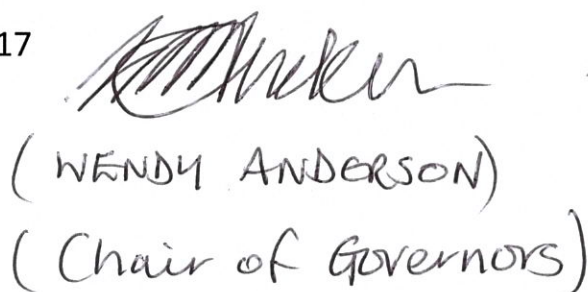 17
(WENDY ANDERSON)
(Chair of Governors)